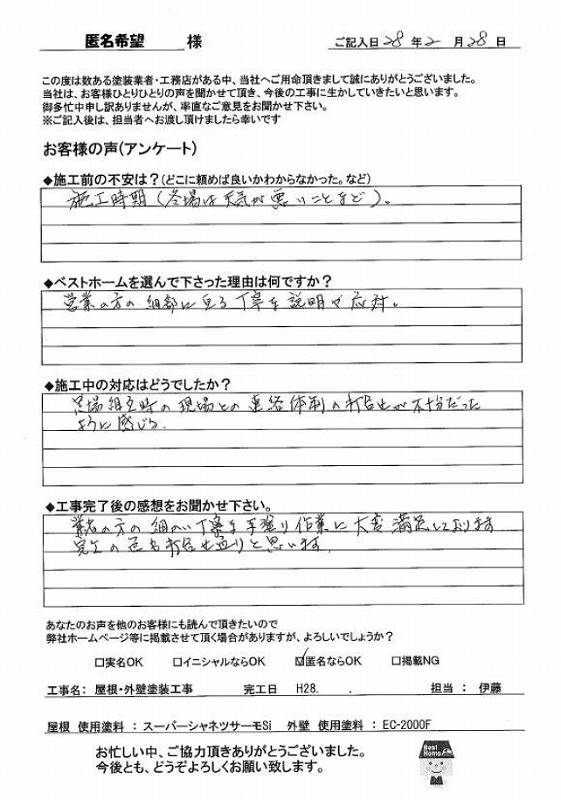 匿名希望 様
ご記入日 28 年 2 月 28 日
この度は数ある塗装業者・工務店がある中、当社へご用命頂きまして誠にありがとうございました。
当社は、お客様ひとりひとりの声を聞かせて頂き、今後の工事に生かしていきたいと思います。
御多忙中申し訳ありませんが、率直なご意見をお聞かせ下さい。
※ご記入後は、担当者へお渡し頂けましたら幸いです
お客様の声(アンケート)
◆施工前の不安は?(どこに頼めば良いかわからなかった。など)
施工時期(冬場は天気が悪いことなど)。
◆ベストホームを選んで下さった理由は何ですか?
営業の方の細部に亘る丁寧な説明や応対。
◆施工中の対応はどうでしたか?
足場組立時の現場との連絡体制の打合せが不十分だった
ように感じる。
◆工事完了後の感想をお聞かせ下さい。
業者の方の細かい丁寧な手塗り作業に大変満足しております
完工の色も打合せ通りと思います。
あなたのお声を他のお客様にも読んで頂きたいので
弊社ホームページ等に掲載させて頂く場合がありますが、よろしいでしょうか?
□実名OK □イニシャルならOK ☑匿名ならOK □掲載NG
工事名: 屋根・外壁塗装工事 完工日 H28. . 担当: 伊藤
屋根 使用塗料 : スーパーシャネツサーモSi 外壁 使用塗料 : EC-2000F
お忙しい中、ご協力頂きありがとうございました。
今後とも、どうぞよろしくお願い致します。
Best Home